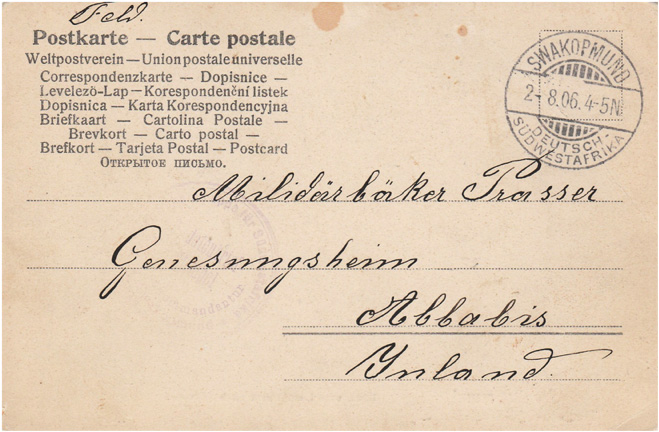 Feld.
Postkarte — Carte postale
Weltpostverein — Union postale universelle
Correspondenzkarte — Dopisnice —
Levelezö-Lap — Korespondenční listek
Dopisnica — Karta Korespondencyjna
Briefkaart — Cartolina Postale —
Brevkort — Carto postal —
Brefkort — Tarjeta Postal — Postcard
Открытое письмо.
SWAKOPMUND
2-8.06.4-5N
DEUTSCH-
SÜDWESTAFRIKA
Militärbäker Prasser
Genesungsheim
Abbabis
Inland.